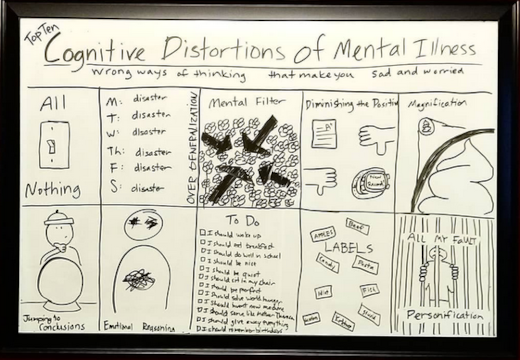 Top Ten
Cognitive Distortions of Mental Illness
Wrong ways of thinking that make you sad and worried
All
Nothing
M: disaster
T: disaster
W: disaster
Th: disaster
F: disaster
S: disaster
OVER GENERALIZATION
Mental Filter
Diminishing the Positive
Magnification
Jumping to
Conclusions
Emotional Reasoning
To Do
I should wake up
I should eat breakfast
I should do well in school
I should be nice
I should be quiet
I should sit in my chair
I should be perfect
I should solve world hunger
I should serve like Mother Theresa
I should give away everything
I should remember birthdays
LABELS
APPLES
Beef
Candy
Pasta
Fish
ALL MY FAULT
Personification